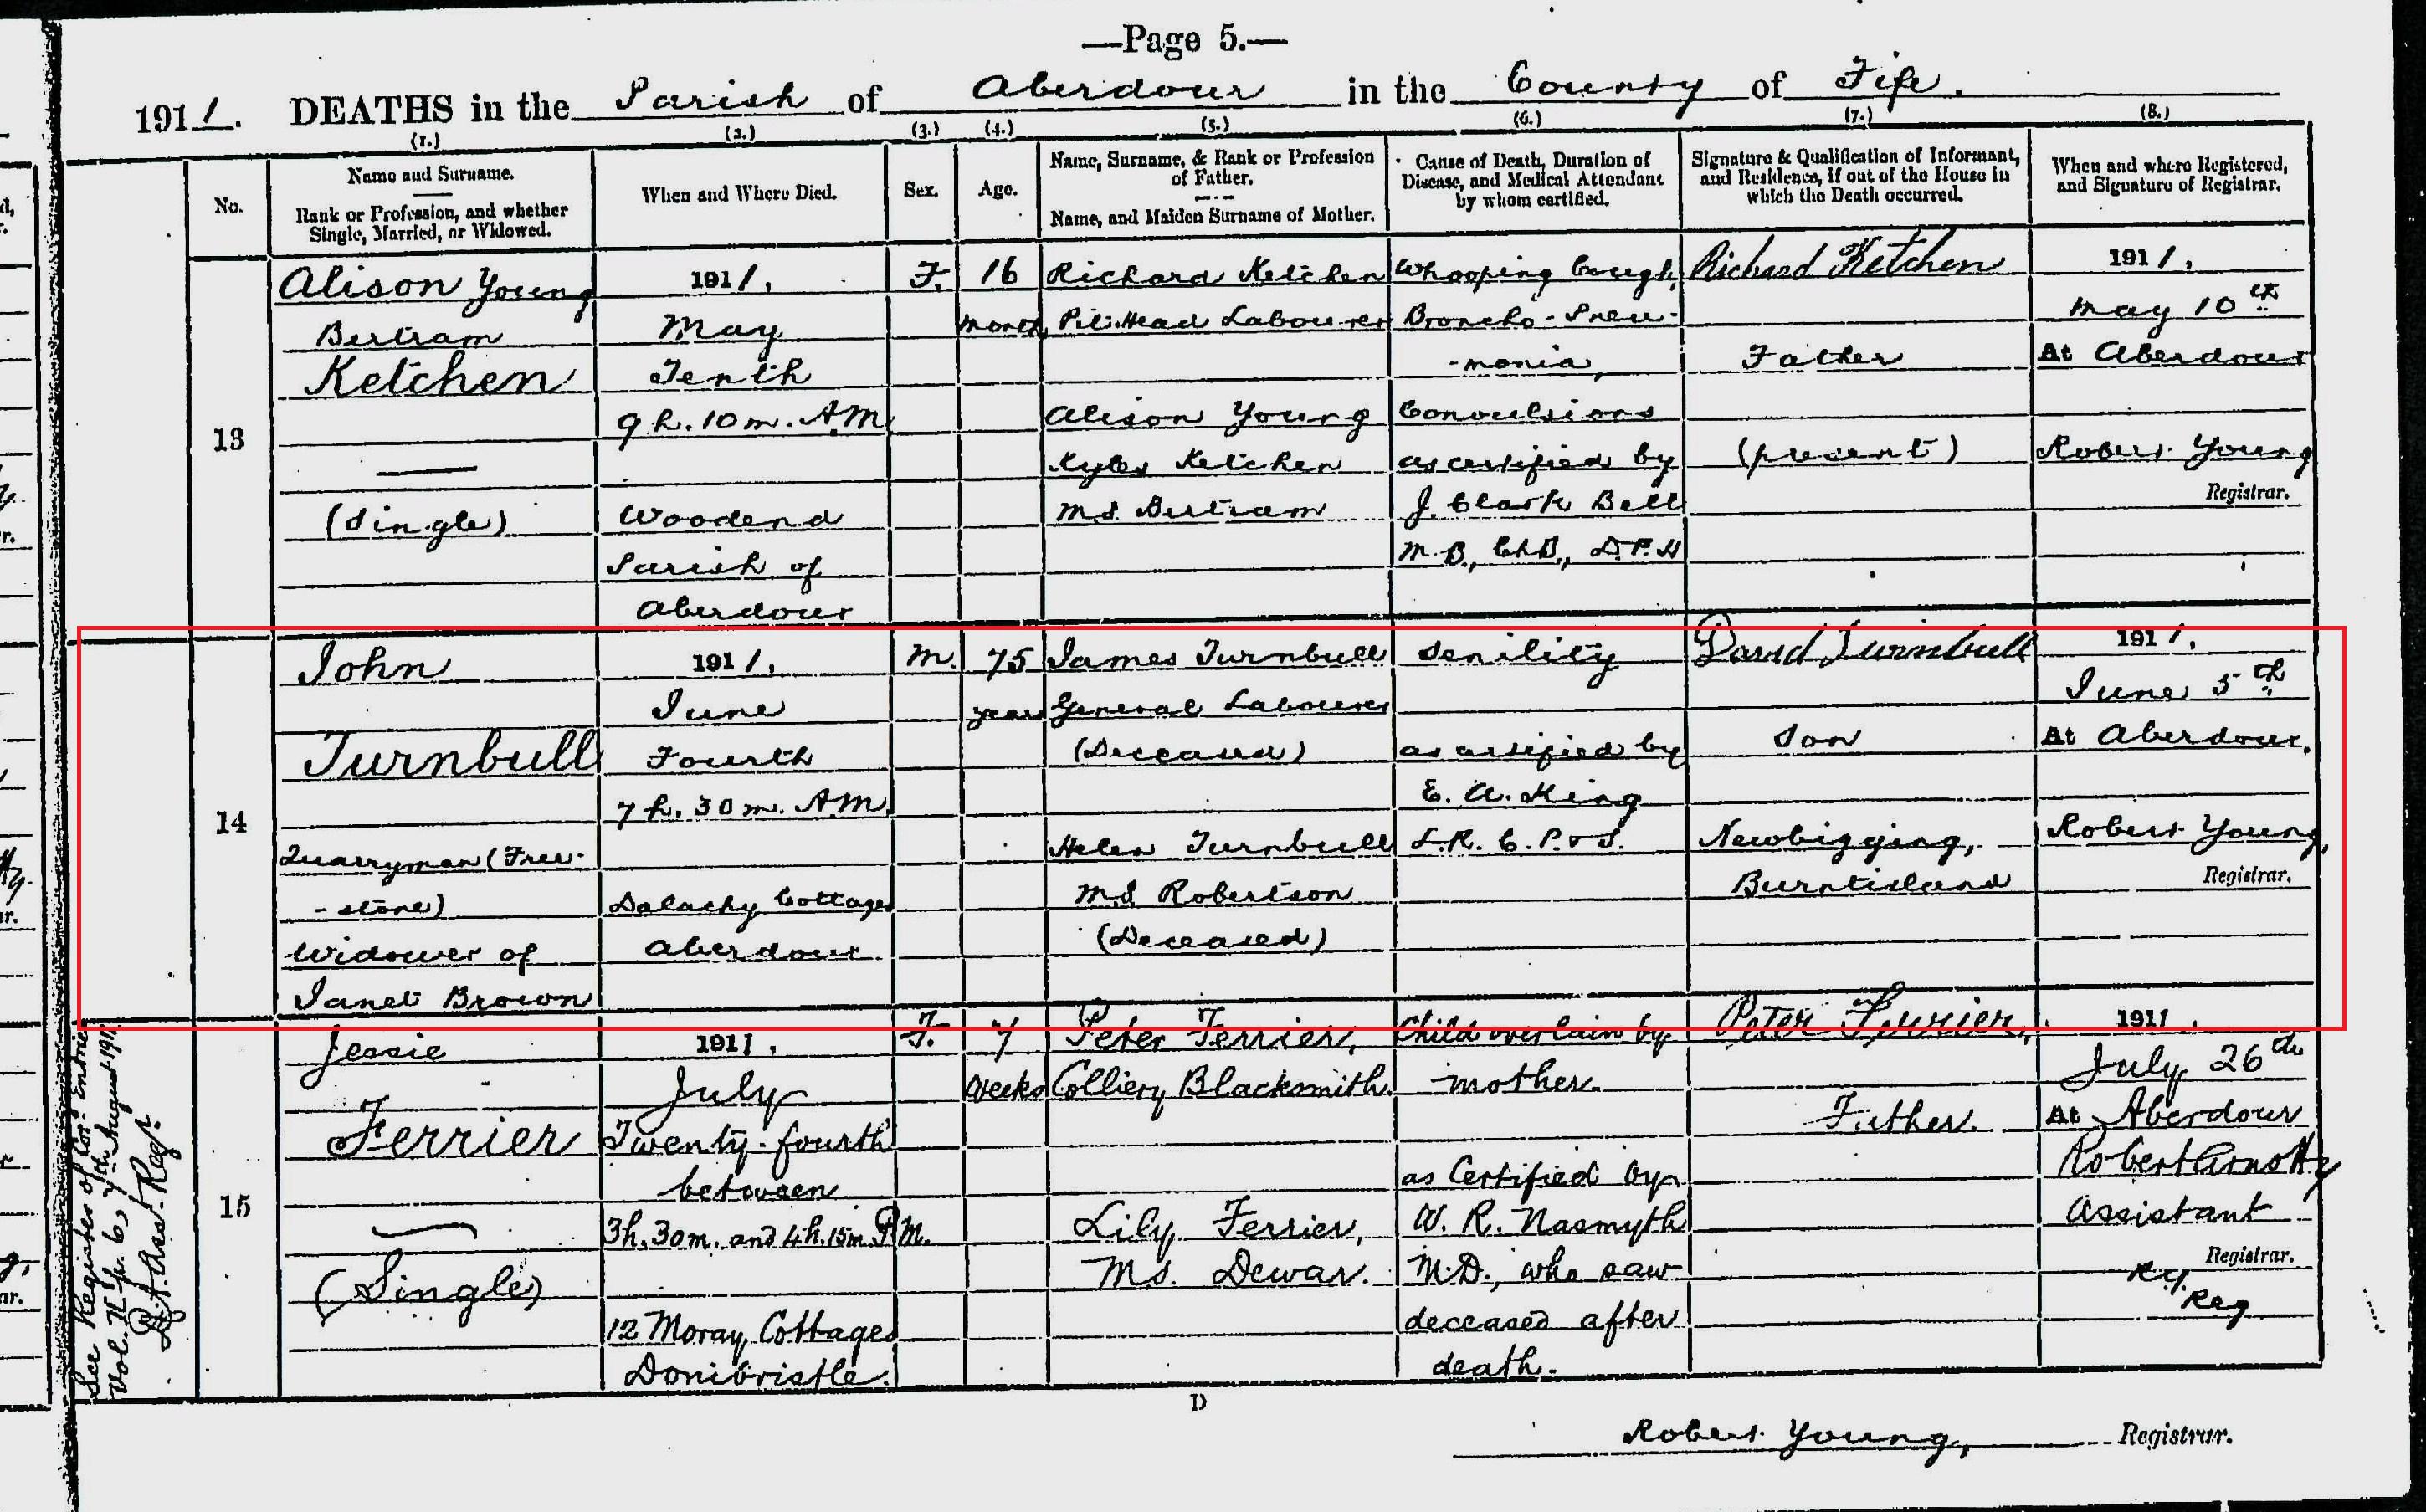 —Page 5.—
1911. DEATHS in the Parish of Aberdour in the County of Fife.
(1.) (2.) (3.) (4.) (5.) (6.) (7.) (8.)
No.
Name and Surname.
Rank or Profession, and whether
Single, Married, or Widowed.
When and Where Died.
Sex.
Age.
Name, Surname, & Rank or Profession
of Father.
Name, and Maiden Surname of Mother.
Cause of Death, Duration of
Disease, and Medical Attendant
by whom certified.
Signature & Qualification of Informant,
and Residence, if out of the House in
which the Death occurred.
When and where Registered,
and Signature of Registrar.
13
Alison Young
Bertram
Ketchen
(Single)
1911.
May
Tenth
9 h. 10 m. A.M.
Woodend
Parish of
Aberdour
F.
16
months
Richard Ketchen
Pit Head Labourer
Alison Young
Ketchen
M.S. Bertram
Whooping Cough,
Broncho-Pneu-
-monia,
Convulsions
as certified by
J. Clark Bell
M.B., Ch.B., D.P.H
Richard Ketchen
Father
(present)
1911.
May 10th
At Aberdour
Robert Young
Registrar.
14
John
Turnbull
Quarryman (Free-
-stone)
Widower of
Janet Brown
1911.
June
Fourth
7 h. 30 m. A.M.
Dalachy Cottages
Aberdour
M.
75
years
James Turnbull
General Labourer
(Deceased)
Helen Turnbull
M.S. Robertson
(Deceased)
Senility
as certified by
E. A. King
L.R.C.P. & S.
David Turnbull
Son
Newbigging,
Burntisland
1911.
June 5th
At Aberdour.
Robert Young,
Registrar.
See Register of Cor. Entries
Vol. II p. 6, 7th August 1911
Ass. Regr.
15
Jessie
Ferrier
(Single)
1911.
July
Twenty-fourth
between
3h. 30m. and 4h. 15m. P.M.
12 Moray Cottages
Donibristle.
F.
7
weeks
Peter Ferrier,
Colliery Blacksmith.
Lily Ferrier,
Ms. Dewar.
Child overlain by
mother.
as Certified by
W. R. Nasmyth
M.D., who saw
deceased after
death.
Peter Ferrier,
Father.
1911.
July 26th
At Aberdour
Robert Arnott
Assistant
Registrar.
R.Y.
Reg
D
Robert Young, Registrar.